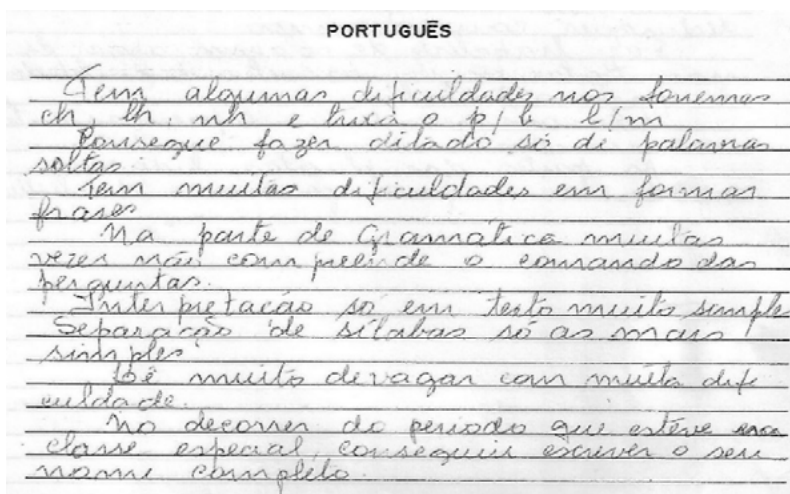 PORTUGUÊS
Tem algumas dificuldades nos fonemas
ch lh, nh e troca o p/b l/m
Consegue fazer ditado só di palavras
soltas
Tem muitas dificuldades em formar
frases
Na parte de Gramática muitas
vezes não compreende o comando das
perguntas.
Interpretação só em texto muito simple
Separação de sílabas só as mais
simples
Lê muito devagar com muita difi
culdade.
No decorrer do periodo que esteve na
classe especial, conseguiu escrever o seu
nome completo.